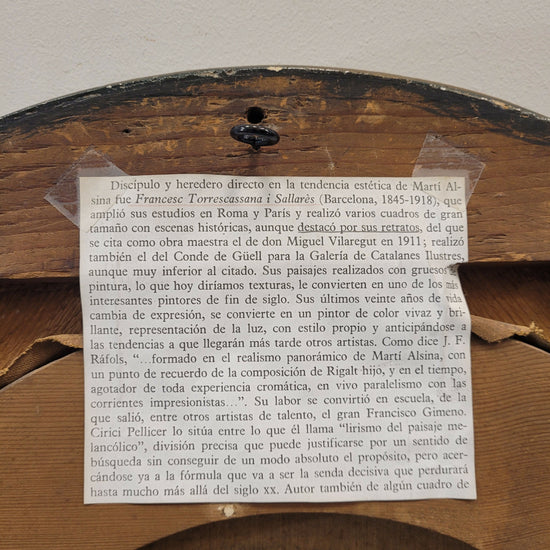 Discípulo y heredero directo en la tendencia estética de Martí Al-
sina fue Francesc Torrescassana i Sallarès (Barcelona, 1845-1918), que
amplió sus estudios en Roma y París y realizó varios cuadros de gran
tamaño con escenas históricas, aunque destacó por sus retratos, del que
se cita como obra maestra el de don Miguel Vilaregut en 1911; realizó
también el del Conde de Güell para la Galería de Catalanes Ilustres,
aunque muy inferior al citado. Sus paisajes realizados con gruesos de
pintura, lo que hoy diríamos texturas, le convierten en uno de los más
interesantes pintores de fin de siglo. Sus últimos veinte años de vida
cambia de expresión, se convierte en un pintor de color vivaz y bri-
llante, representación de la luz, con estilo propio y anticipándose a
las tendencias a que llegarán más tarde otros artistas. Como dice J. F.
Ráfols, “...formado en el realismo panorámico de Martí Alsina, con
un punto de recuerdo de la composición de Rigalt hijo, y en el tiempo,
agotador de toda experiencia cromática, en vivo paralelismo con las
corrientes impresionistas...”. Su labor se convirtió en escuela, de la
que salió, entre otros artistas de talento, el gran Francisco Gimeno.
Cirici Pellicer lo sitúa entre lo que él llama “lirismo del paisaje me-
lancólico”, división precisa que puede justificarse por un sentido de
búsqueda sin conseguir de un modo absoluto el propósito, pero acer-
cándose ya a la fórmula que va a ser la senda decisiva que perdurará
hasta mucho más allá del siglo XX. Autor también de algún cuadro de